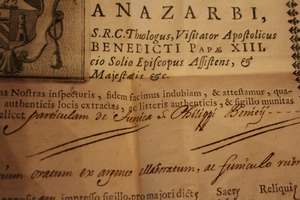 ANAZARBI,
S.R.C. Theologus, Visitator Apostolicus
BENEDICTI PAPÆ XIII.
cio Solio Episcopus Assistens, &
Majestatis &c.
as Nostras inspecturis, fidem facimus indubiam, & attestamur, qua
authenticis locis extractas, ac litteris authenticis, & sigillo munitas
licet particulam de Tunica S. Philippi Benicij
ium oratum ex argneo elaboratum, ac funiculo
impresso sigillo, pro majori dict Sacr Reliqui